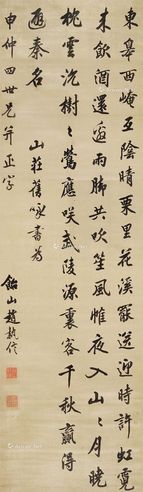 東皋西崦互陰晴栗里花溪罷送迎時許虹霓
來飲酒還邀雨腳共吹笙風帷夜入山山月曉
枕雲沉樹樹鶯應咲武陵源裏客千秋贏得
避秦名　山莊舊咏書為
申仲四世兄并正字
飴山趙執信